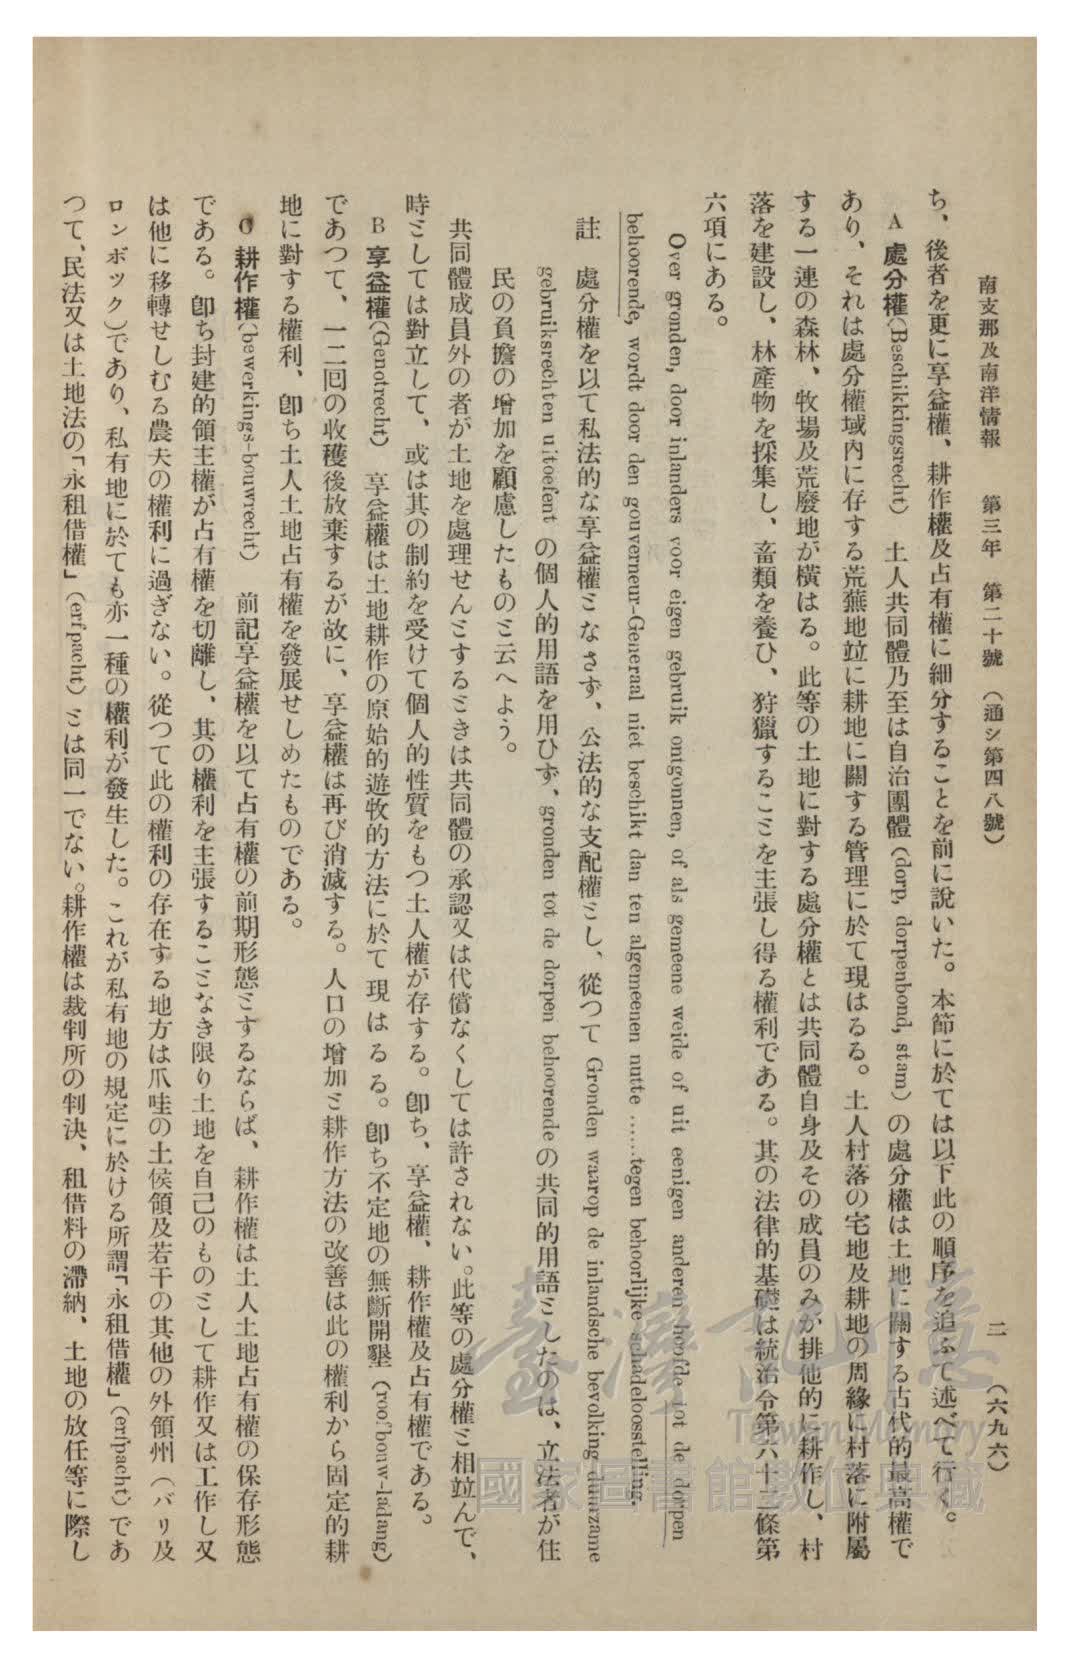 南支那及南洋情報　第三年　第二十號　（通シ第四八號）　二　（六九六）
ち、後者を更に享益權、耕作權及占有權に細分することを前に說いた。本節に於ては以下此の順序を追ふて述べて行く。
A　處分權（Beschikkingsrecht）　土人共同體乃至は自治團體（dorp, dorpenbond, stam）の處分權は土地に關する古代的最高權で
あり、それは處分權域內に存する荒蕪地竝に耕地に關する管理に於て現はるる。土人村落の宅地及耕地の周緣に村落に附屬
する一連の森林、牧場及荒廢地が橫はる。此等の土地に對する處分權とは共同體自身及その成員のみが排他的に耕作し、村
落を建設し、林產物を採集し、畜類を養ひ、狩獵することを主張し得る權利である。其の法律的基礎は統治令第六十二條第
六項にある。
Over gronden, door inlanders voor eigen gebruik ontgonnen, of als gemeene weide of uit eenigen anderen hoofde tot de dorpen
behoorende, wordt door den gouverneur-Generaal niet beschikt dan ten algemeenen nutte ……tegen behoorlijke schadeloosstelling.
註　處分權を以て私法的な享益權となさず、公法的な支配權とし、從つて Gronden waarop de inlandsche bevolking duurzame
gebruiksrechten uitoefent の個人的用語を用ひず、gronden tot de dorpen behoorende の共同的用語としたのは、立法者が住
民の負擔の增加を顧慮したものと云へよう。
共同體成員外の者が土地を處理せんとするときは共同體の承認又は代償なくしては許されない。此等の處分權と相竝んで、
時としては對立して、或は其の制約を受けて個人的性質をもつ土人權が存する。卽ち、享益權、耕作權及占有權である。
B　享益權（Genotrecht）　享益權は土地耕作の原始的遊牧的方法に於て現はるる。卽ち不定地の無斷開墾（roofbouw-ladang）
であつて、一二回の收穫後放棄するが故に、享益權は再び消滅する。人口の增加と耕作方法の改善は此の權利から固定的耕
地に對する權利、卽ち土人土地占有權を發展せしめたものである。
C　耕作權（bewerkings-bouwrecht）　前記享益權を以て占有權の前期形態とするならば、耕作權は土人土地占有權の保存形態
である。卽ち封建的領主權が占有權を切離し、其の權利を主張することなき限り土地を自己のものとして耕作又は工作し又
は他に移轉せしむる農夫の權利に過ぎない。從つて此の權利の存在する地方は爪哇の土侯領及若干の其他の外領州（バリ及
ロンボック）であり、私有地に於ても亦一種の權利が發生した。これが私有地の規定に於ける所謂「永租借權」（erfpacht）であ
つて、民法又は土地法の「永租借權」（erfpacht）とは同一でない。耕作權は裁判所の判決、租借料の滯納、土地の放任等に際し
臺灣記憶
Taiwan Memory
國家圖書館數位典藏